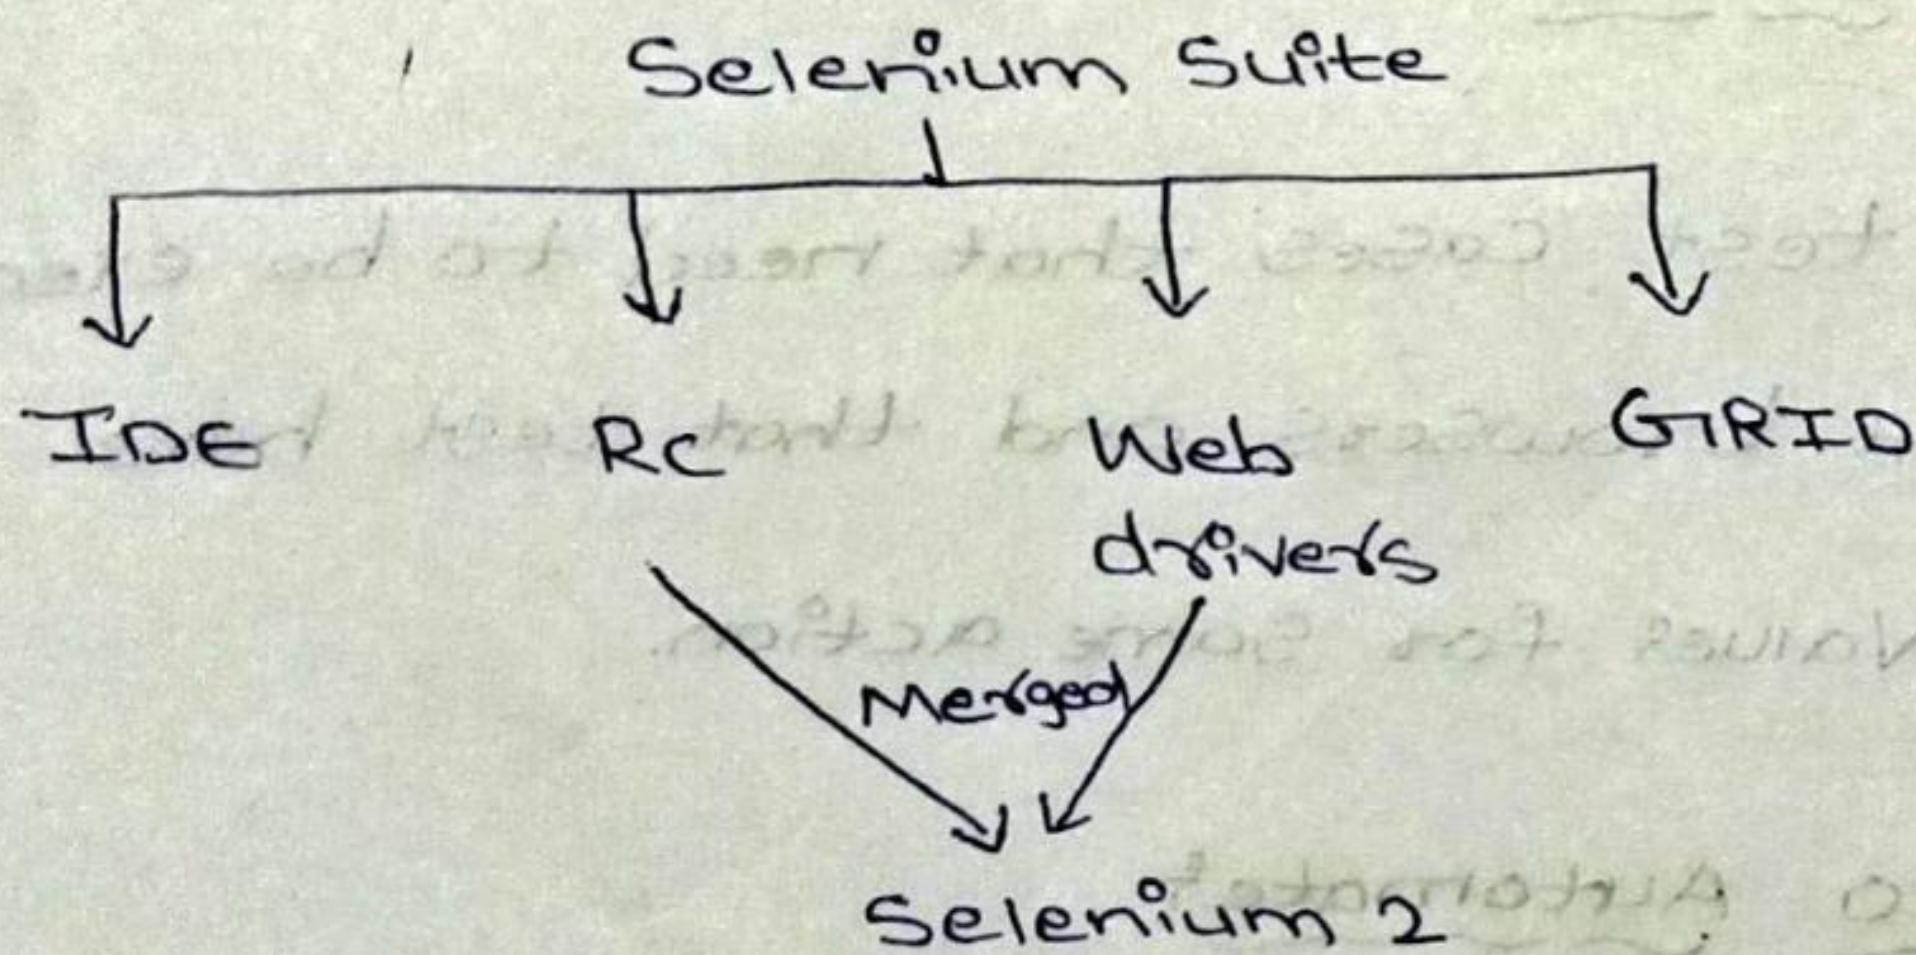 Selenium Suite
IDE RC Web GRID
drivers
Merged
Selenium 2